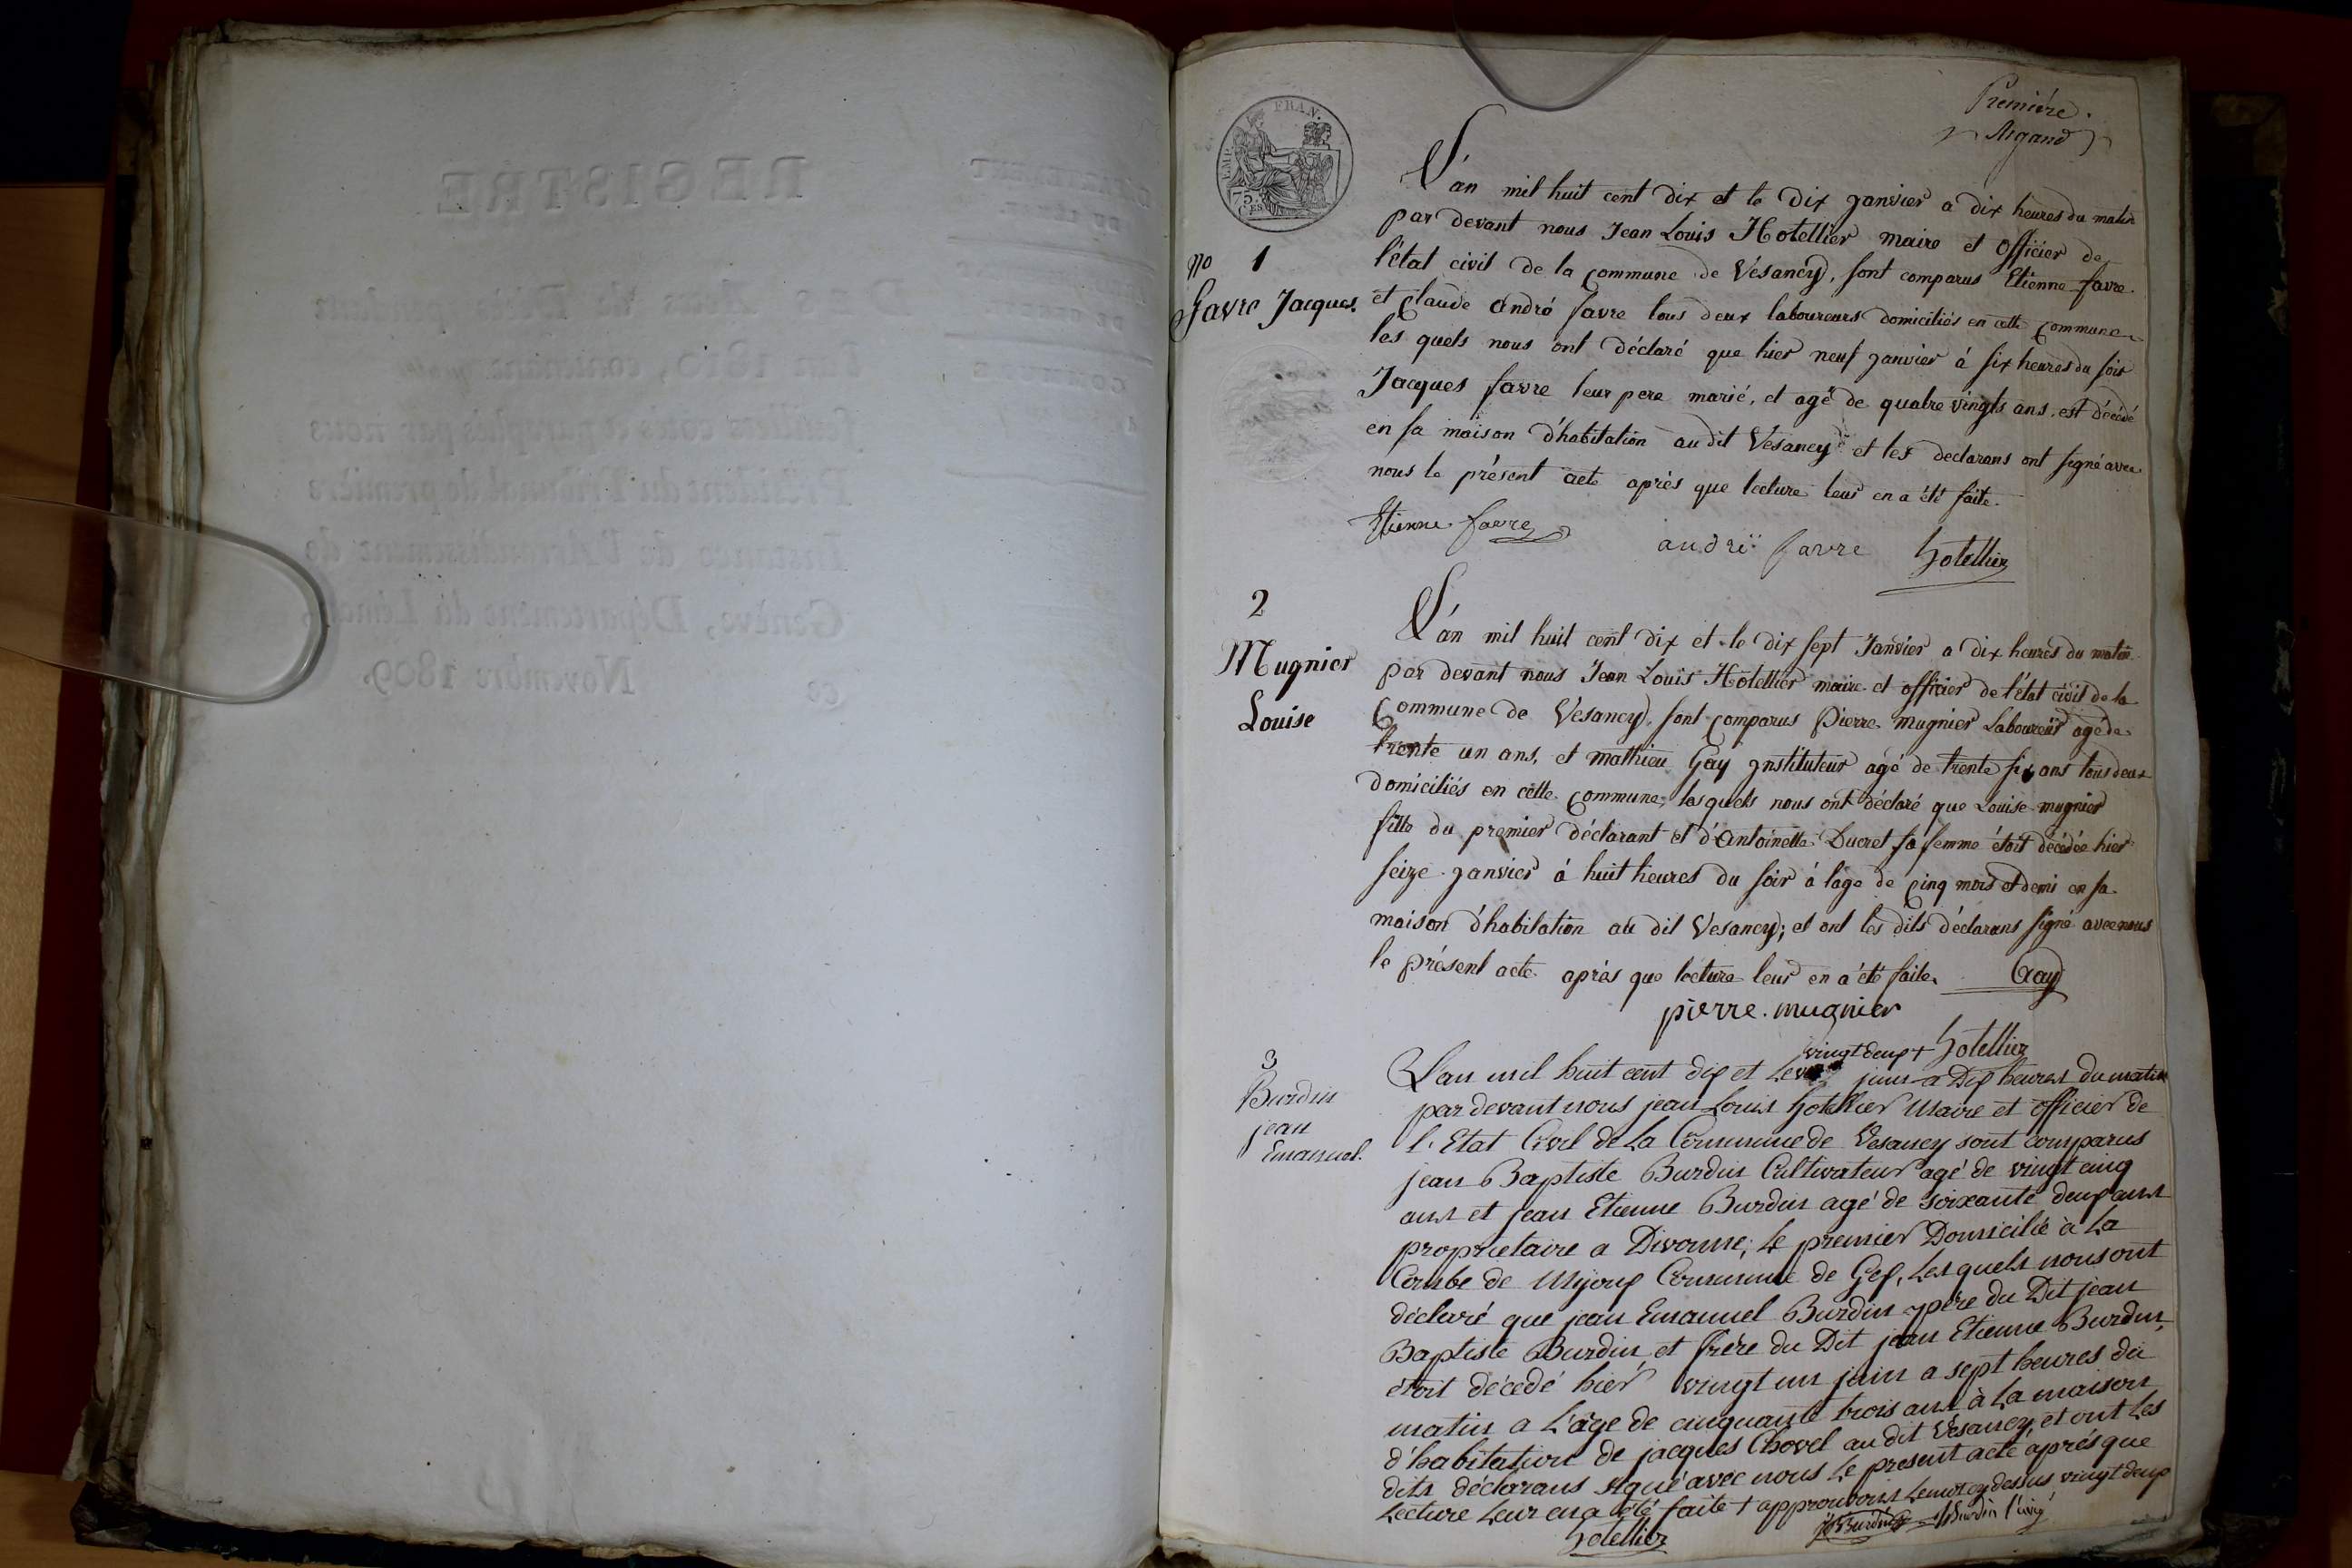 Premiére.
Argand
EMP. FRAN.
75.
CES
L'an mil huit cent dix et le dix janvier a dix heures du matin
par devant nous Jean Louis Hotellier maire et officier de
n° 1
Favre Jacques.
l'état civil de la commune de Vésancy, sont comparus Etienne favre
et Claude André favre tous deux laboureurs domiciliés en cette commune
les quels nous ont déclaré que hier neuf janvier à six heures du soir
Jacques favre leur pere marié, et agé de quatre vingts ans, est décédé
en sa maison d'habitation au dit Vésancy et les declarans ont signé avec
nous le présent acte après que lecture leur en a été faite.
Etienne favre
andré favre
hotellier
2
Mugnier
Louise
L'an mil huit cent dix et le dix sept Janvier a dix heures du matin
par devant nous Jean Louis Hotellier maire et officier de l'état civil de la
Commune de Vesancy, sont comparus Pierre mugnier Laboureur agé de
trente un ans, et mathieu Gay instituteur agé de trente six ans tous deux
domiciliés en cette commune, lesquels nous ont déclaré que Louise mugnier
fille du premier déclarant et d'Antoinette Ducret sa femme étoit décédée hier
seize janvier à huit heures du soir à l'age de cinq mois et demi en sa
maison d'habitation au dit Vesancy; et ont les dits déclarans signé avec nous
le présent acte après que lecture leur en a été faite.
Gay
pierre. mugnier
hotellier
3
Burdin
jean
Emanuel.
vingt deux +
L'an mil huit cent dix et le juin a Dix heures du matin
par devant nous jean Louis hotellier Maire et officier de
l'Etat Civil de la Commune de Vesancy sont comparus
jean Baptiste Burdin Cultivateur agé de vingt cinq
ans et jean Etienne Burdin agé de soixante deux ans
proprietaire a Divonne, le premier Domicilié à la
Combe de Mijoux Commune de Gex, Lesquels nous ont
déclaré que jean Emanuel Burdin père du Dit jean
Baptiste Burdin et frère du Dit jean Etienne Burdin,
étoit décedé hier vingt un juin a sept heures du
matin a L'âge de cinquante trois ans à la maison
d'habitation de jacques Chovel au dit Vésancy, et ont Les
dits déclarans signé avec nous Le present acte après que
Lecture Leur en a été faite + approuvons Le mot cy dessus vingt deux
hotellier
JB Burdin
Burdin l'ainé
REGISTRE
Novembre 1809.